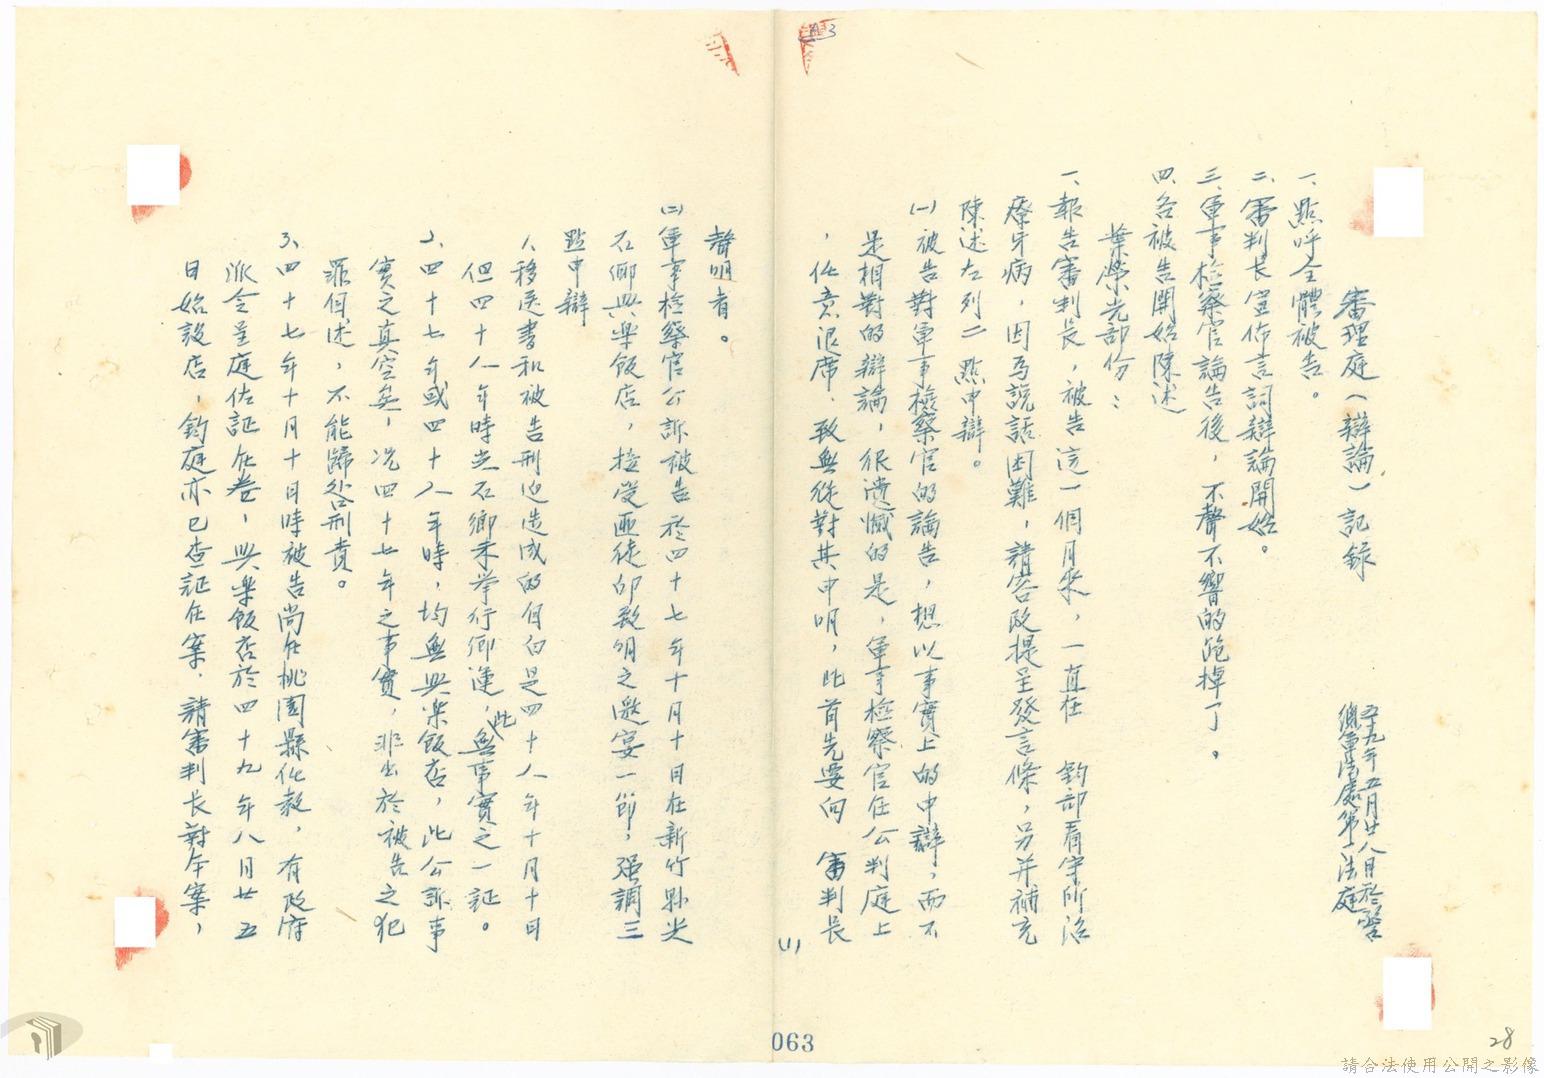 審理庭(辯論)記錄
五十九年五月廿八日於警
總軍法處第一法庭
一、點呼全體被告。
二、審判長宣佈言詞辯論開始。
三、軍事檢察官論告後，不聲不響的跑掉了。
四、各被告開始陳述
葉榮光部份：
一、報告審判長，被告這一個月來，一直在 鈞部看守所治
療牙病，因為說話困難，請容改提呈發言條，另并補充
陳述左列二點申辯。
(一)被告對軍事檢察官的論告，想以事實上的申辯，而不
是相對的辯論，很遺憾的是，軍事檢察官在公判庭上
，任意退席，致無從對其申明，此首先要向 審判長
(1)
聲明者。
(二)軍事檢察官公訴被告於四十七年十月十日在新竹縣尖
石鄉興樂飯店，接受匪徒邱致明之邀宴一節，強調三
點申辯
1、移送書和被告刑迫造成的何白是四十八年十月十日
但四十八年時尖石鄉未舉行鄉運，此無事實之一証。
2、四十七年或四十八年時，均無興樂飯店，此公訴事
實之真空矣，況四十七年之事實，非出於被告之犯
罪何述，不能歸咎刑責。
3、四十七年十月十日時被告尚任桃園縣任教，有政府
派令呈庭佐証在卷，興樂飯店於四十九年八月廿五
日始設店，鈞庭亦已查証在案，請審判長對本案，
063
28
請合法使用公開之影像